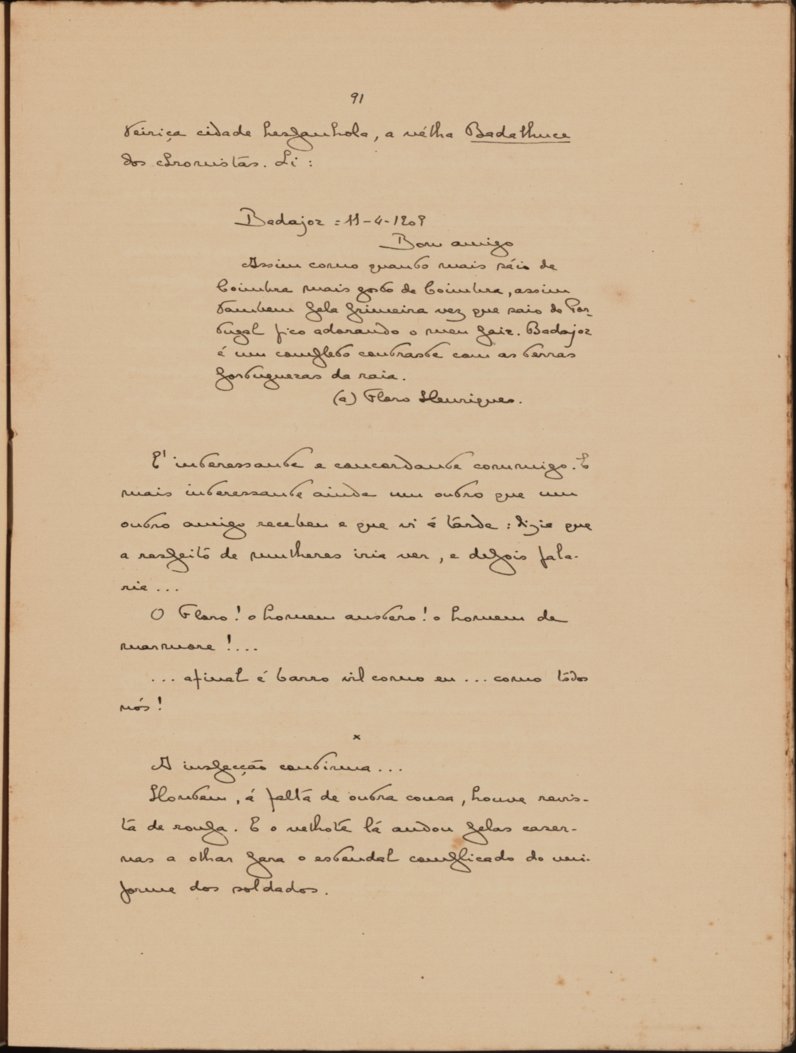 91
teiriça cidade hespanhola, a vélha Badalhuce
dos chronistas. Li:
Badajoz = 11-4-1909
Bom amigo
Assim como quanto mais sáio de
Coimbra mais gosto de Coimbra, assim
tambem pela primeira vez que saio de Por-
tugal fico adorando o meu paiz. Badajoz
é um completo contraste com as terras
portuguezas da raia.
(a) Floro Henriques.
E' interessante e concordante commigo. E
mais interessante ainda um outro que um
outro amigo recebeu e que vi á tarde: dizia que
a respeito de mulheres iria ver, e depois fala-
ria...
O Floro! o homem austero! o homem de
marmore!...
... afinal é barro vil como eu... como tôdos
nós!
x
A inspecção continua...
Hontem, á falta de outra cousa, houve revis-
ta de roupa. E o velhote lá andou pelas caser-
nas a olhar para o estendal complicado do uni-
forme dos soldados.